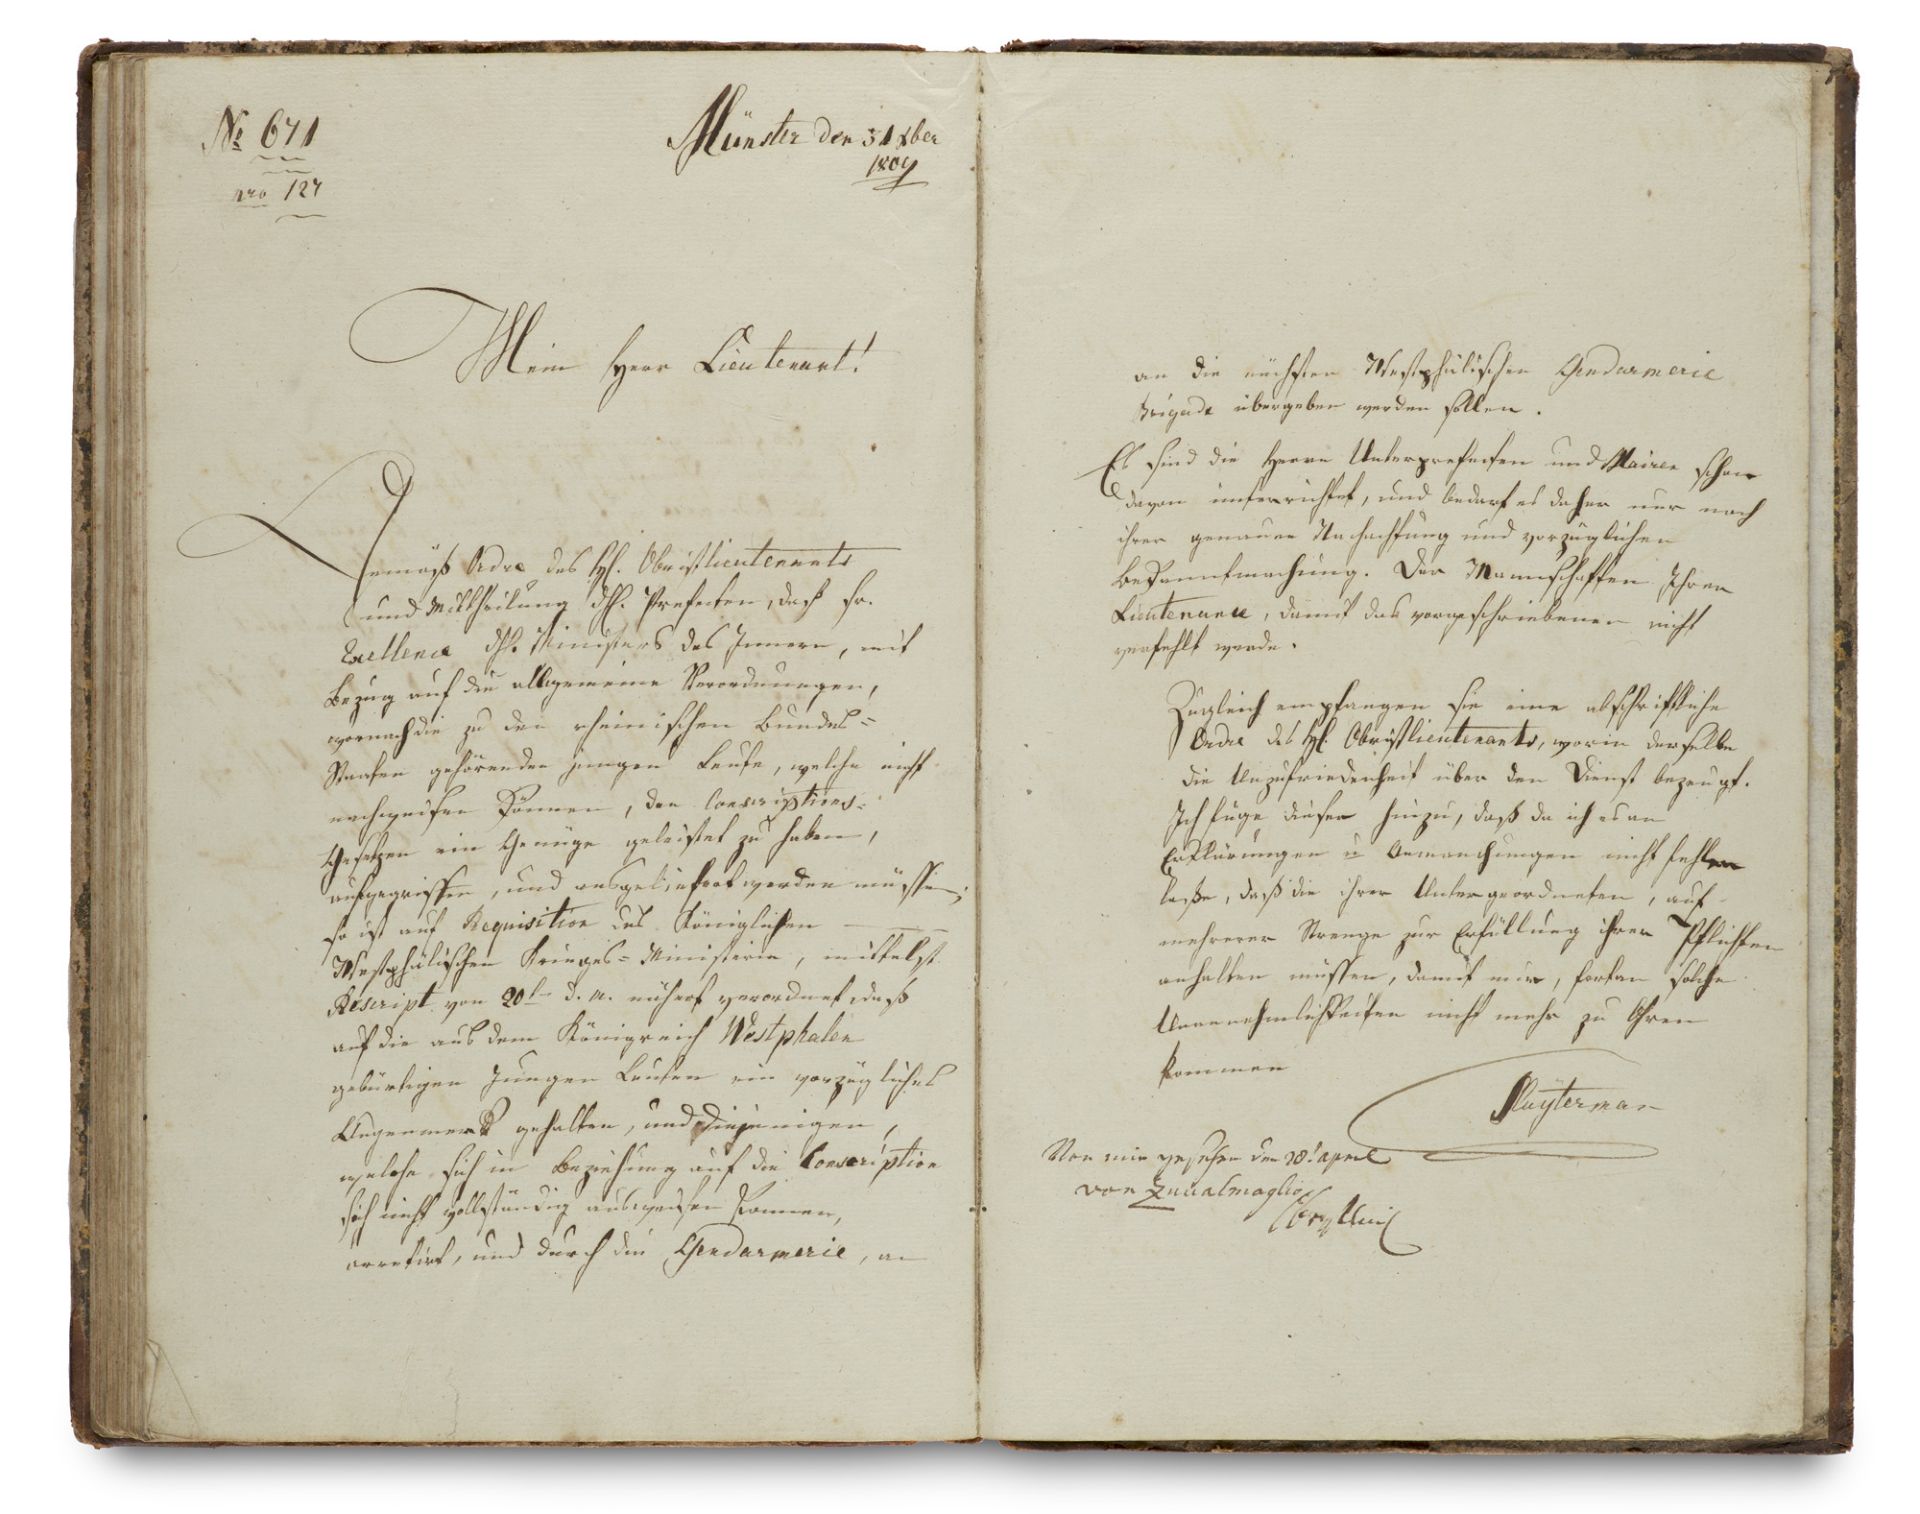 № 671
nro 127
Münster den 31 Xber
1809
Mein Herr Lieutenant!
Gemäß Ordre des H. Obristlieutenants
und Mittheilung dH. Prefecten, daß Sr.
Excellence dH. Ministers des Innern, mit
Bezug auf die allgemeine Verordnungen,
wornach die zu den rheinischen Bundes=
Staaten gehörenden jungen Leute, welche nicht
nachweisen können, den Conscriptions=
Gesetzen ein Genüge geleistet zu haben,
aufgegriffen, und ausgeliefert werden müssen,
so ist auf Requisition des Königlichen
Westphälischen Krieges=Ministerie, mittelst
Rescript von 20t d. M. nüherst verordnet, daß
auf die aus dem Königreich Westphalen
gebürtigen Jungen Leuten ein vorzügliches
Augenmerk gehalten, und diejenigen,
welche sich in Beziehung auf die Conscription
sich nicht vollständig ausweisen können,
arretirt, und durch die Gendarmerie, an
an die nächsten Westphälischen Gendarmerie
Brigade übergeben werden sollen.
Es sind die Herrn Unterprefecten und Mairen schon
davon unterrichtet, und bedarf es daher nur noch
ihrer genauen Nachachtung und vorzüglichen
Bekanntmachung. Der Mannschaften Ihrer
Lieutenance, damit das vorgeschriebenen nicht
verfehlt werde.
Zugleich empfangen sie eine abschriftliche
Ordre des H. Obristlieutenants, worin derselbe
die Unzufriedenheit über den Dienst bezeugt.
Ich füge diesen hinzu, daß da ich es an
Erklärungen u Anmerkungen nicht fehlen
laße, daß die ihrer Untergeordneten, auf
mehrerer Strenge zur Erfüllung ihrer Pflichten
anhalten müssen, damit mir, fortan solche
Unannehmlichkeiten nicht mehr zu Ohren
kommen
Sluyterman
Von mir gesehen den 28t April
von Zuccalmaglio